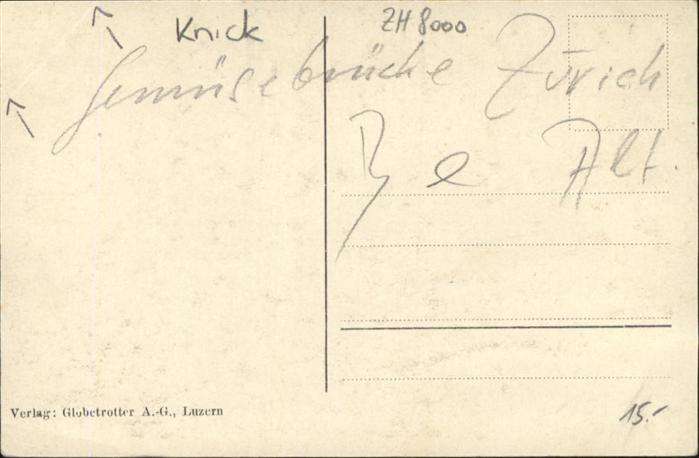 Knick
ZH 8000
Gemüsebrücke Zürich
Alt.
Verlag: Globetrotter A.-G., Luzern
15.-